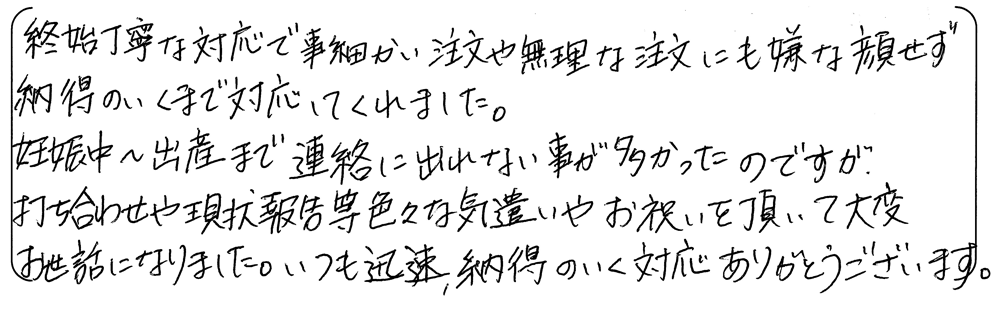 終始丁寧な対応で事細かい注文や無理な注文にも嫌な顔せず
納得のいくまで対応してくれました。
妊娠中～出産まで連絡に出れない事が多かったのですが
打ち合わせや現状報告等色々な気遣いやお祝いを頂いて大変
お世話になりました。いつも迅速,納得のいく対応ありがとうございます。